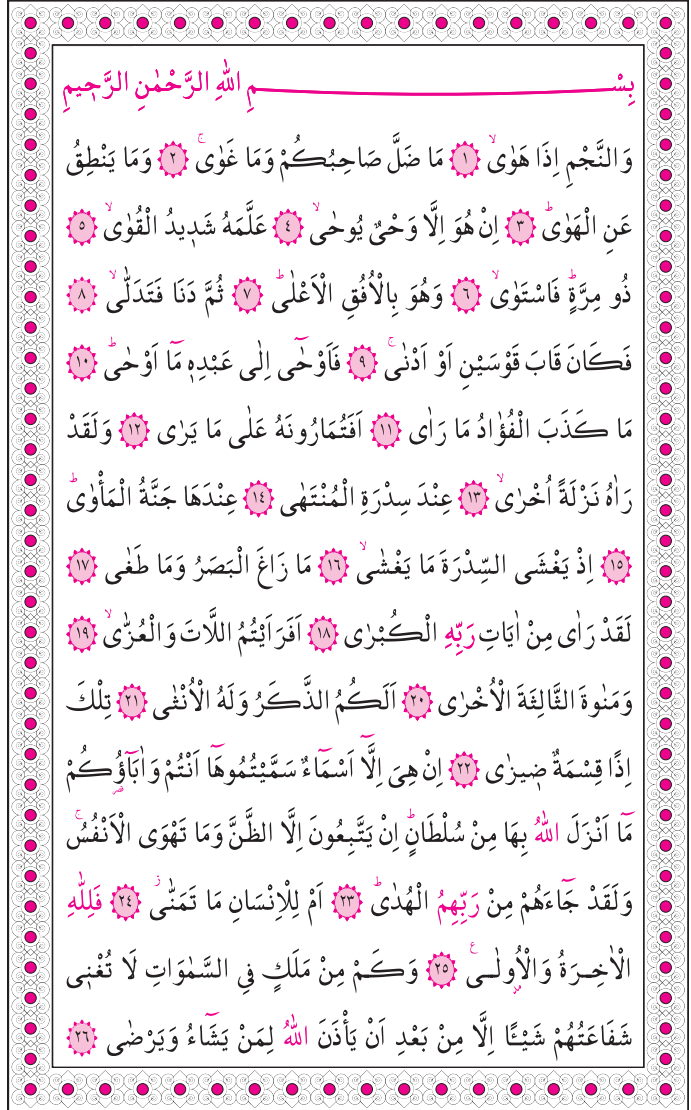 بِسْــــــــــــــــــــمِ اللّٰهِ الرَّحْمٰنِ الرَّحٖيمِ
وَالنَّجْمِ اِذَا هَوٰىۙ ﴿١﴾ مَا ضَلَّ صَاحِبُكُمْ وَمَا غَوٰىۚ ﴿٢﴾ وَمَا يَنْطِقُ
عَنِ الْهَوٰىؕ ﴿٣﴾ اِنْ هُوَ اِلَّا وَحْىٌ يُوحٰىۙ ﴿٤﴾ عَلَّمَهُ شَدٖيدُ الْقُوٰىۙ ﴿٥﴾
ذُو مِرَّةٍؕ فَاسْتَوٰىۙ ﴿٦﴾ وَهُوَ بِالْاُفُقِ الْاَعْلٰىؕ ﴿٧﴾ ثُمَّ دَنَا فَتَدَلّٰىۙ ﴿٨﴾
فَكَانَ قَابَ قَوْسَيْنِ اَوْ اَدْنٰىۚ ﴿٩﴾ فَاَوْحٰٓى اِلٰى عَبْدِهٖ مَٓا اَوْحٰىؕ ﴿١٠﴾
مَا كَذَبَ الْفُؤٰادُ مَا رَاٰى ﴿١١﴾ اَفَتُمَارُونَهُ عَلٰى مَا يَرٰى ﴿١٢﴾ وَلَقَدْ
رَاٰهُ نَزْلَةً اُخْرٰىۙ ﴿١٣﴾ عِنْدَ سِدْرَةِ الْمُنْتَهٰى ﴿١٤﴾ عِنْدَهَا جَنَّةُ الْمَأْوٰىؕ
﴿١٥﴾ اِذْ يَغْشَى السِّدْرَةَ مَا يَغْشٰىۙ ﴿١٦﴾ مَا زَاغَ الْبَصَرُ وَمَا طَغٰى ﴿١٧﴾
لَقَدْ رَاٰى مِنْ اٰيَاتِ رَبِّهِ الْكُبْرٰى ﴿١٨﴾ اَفَرَاَيْتُمُ اللَّاتَ وَالْعُزّٰىۙ ﴿١٩﴾
وَمَنٰوةَ الثَّالِثَةَ الْاُخْرٰى ﴿٢٠﴾ اَلَكُمُ الذَّكَرُ وَلَهُ الْاُنْثٰى ﴿٢١﴾ تِلْكَ
اِذًا قِسْمَةٌ ضٖيزٰى ﴿٢٢﴾ اِنْ هِىَ اِلَّٓا اَسْمَٓاءٌ سَمَّيْتُمُوهَٓا اَنْتُمْ وَاٰبَٓاؤُ۬كُمْ
مَٓا اَنْزَلَ اللّٰهُ بِهَا مِنْ سُلْطَانٍؕ اِنْ يَتَّبِعُونَ اِلَّا الظَّنَّ وَمَا تَهْوَى الْاَنْفُسُۚ
وَلَقَدْ جَٓاءَهُمْ مِنْ رَبِّهِمُ الْهُدٰىؕ ﴿٢٣﴾ اَمْ لِلْاِنْسَانِ مَا تَمَنّٰىؗ ﴿٢٤﴾ فَلِلّٰهِ
الْاٰخِرَةُ وَالْاُو۫لٰى ﴿٢٥﴾ وَكَمْ مِنْ مَلَكٍ فِى السَّمٰوَاتِ لَا تُغْنٖى
شَفَاعَتُهُمْ شَيْـًٔا اِلَّا مِنْ بَعْدِ اَنْ يَأْذَنَ اللّٰهُ لِمَنْ يَشَٓاءُ وَيَرْضٰى ﴿٢٦﴾